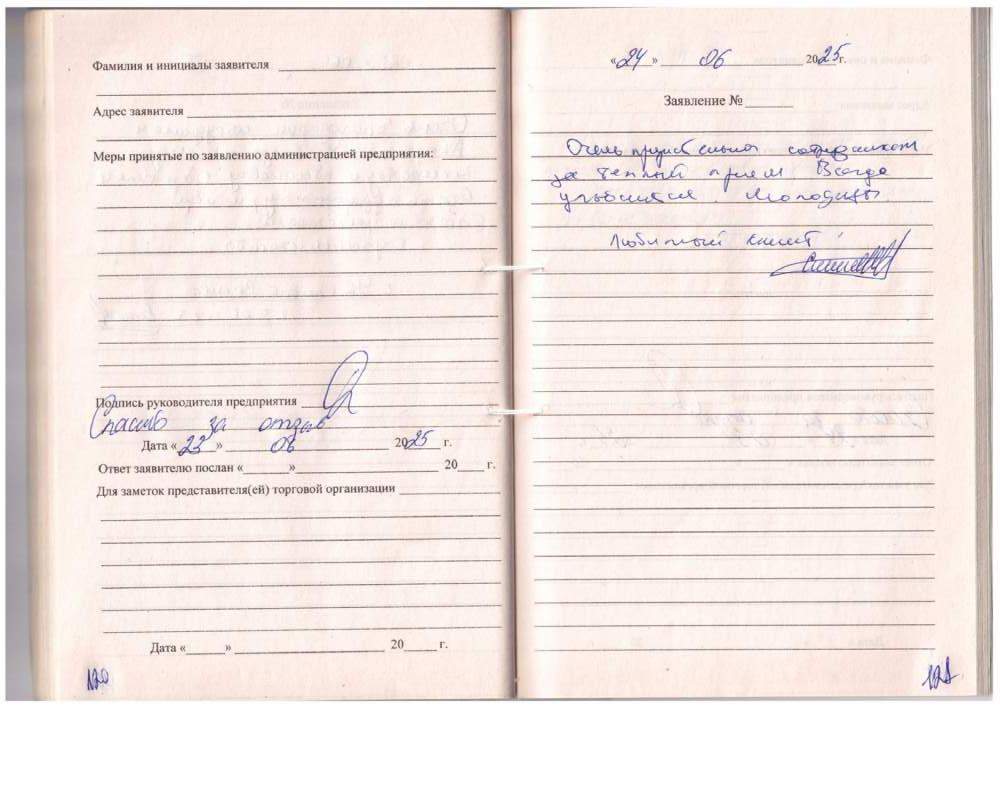 Фамилия и инициалы заявителя
Адрес заявителя
Меры принятые по заявлению администрацией предприятия:
Подпись руководителя предприятия
Спасибо за отзыв
Дата «23» 06 2025 г.
Ответ заявителю послан «______»______ 20____ г.
Для заметок представителя(ей) торговой организации
Дата «______» ______ 20____ г.
120
«24» 06 2025г.
Заявление №
Очень сотрудникам
за теплый прием Всегда
улыбаются. Молодцы.
Любимый клиент!
121